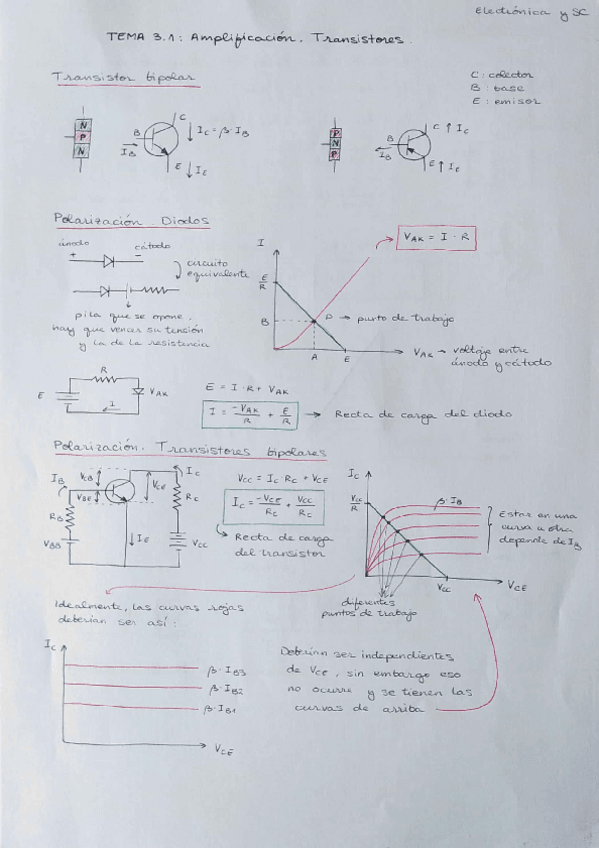 Electrónica y SC
TEMA 3.1: Amplificación. Transistores.
Transistor bipolar
C: colector
B: base
E: emisor
N
P
N
B
I_B
C
I_C = β·I_B
E
I_E
P
N
P
B
I_B
C
I_C
E
I_E
Polarización. Diodos
ánodo
cátodo
+
-
circuito
equivalente
pila que se opone,
hay que vencer su tensión
y la de la resistencia
I
E/R
B
A
E
D → punto de trabajo
V_AK = I · R
V_AK → voltaje entre
ánodo y cátodo
R
E
V_AK
I
E = I·R + V_AK
I = -V_AK/R + E/R → Recta de carga del diodo
Polarización. Transistores bipolares
I_B
V_CB
V_BE
V_CE
I_C
R_B
R_C
V_BB
I_E
V_CC
V_CC = I_C·R_C + V_CE
I_C = -V_CE/R_C + V_CC/R_C
Recta de carga
del transistor
I_C
V_CC/R
β·I_B
Estar en una
curva u otra
depende de I_B
V_CC
V_CE
diferentes
puntos de trabajo
Idealmente, las curvas rojas
deberían ser así:
I_C
β·I_B3
β·I_B2
β·I_B1
V_CE
Deberían ser independientes
de V_CE, sin embargo eso
no ocurre y se tienen las
curvas de arriba